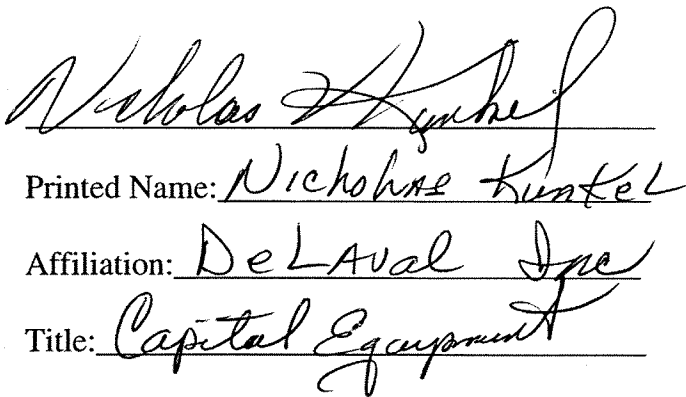 Nicholas Kunkel
Printed Name: Nicholas Kunkel
Affiliation: DeLaval Inc
Title: Capital Equipment